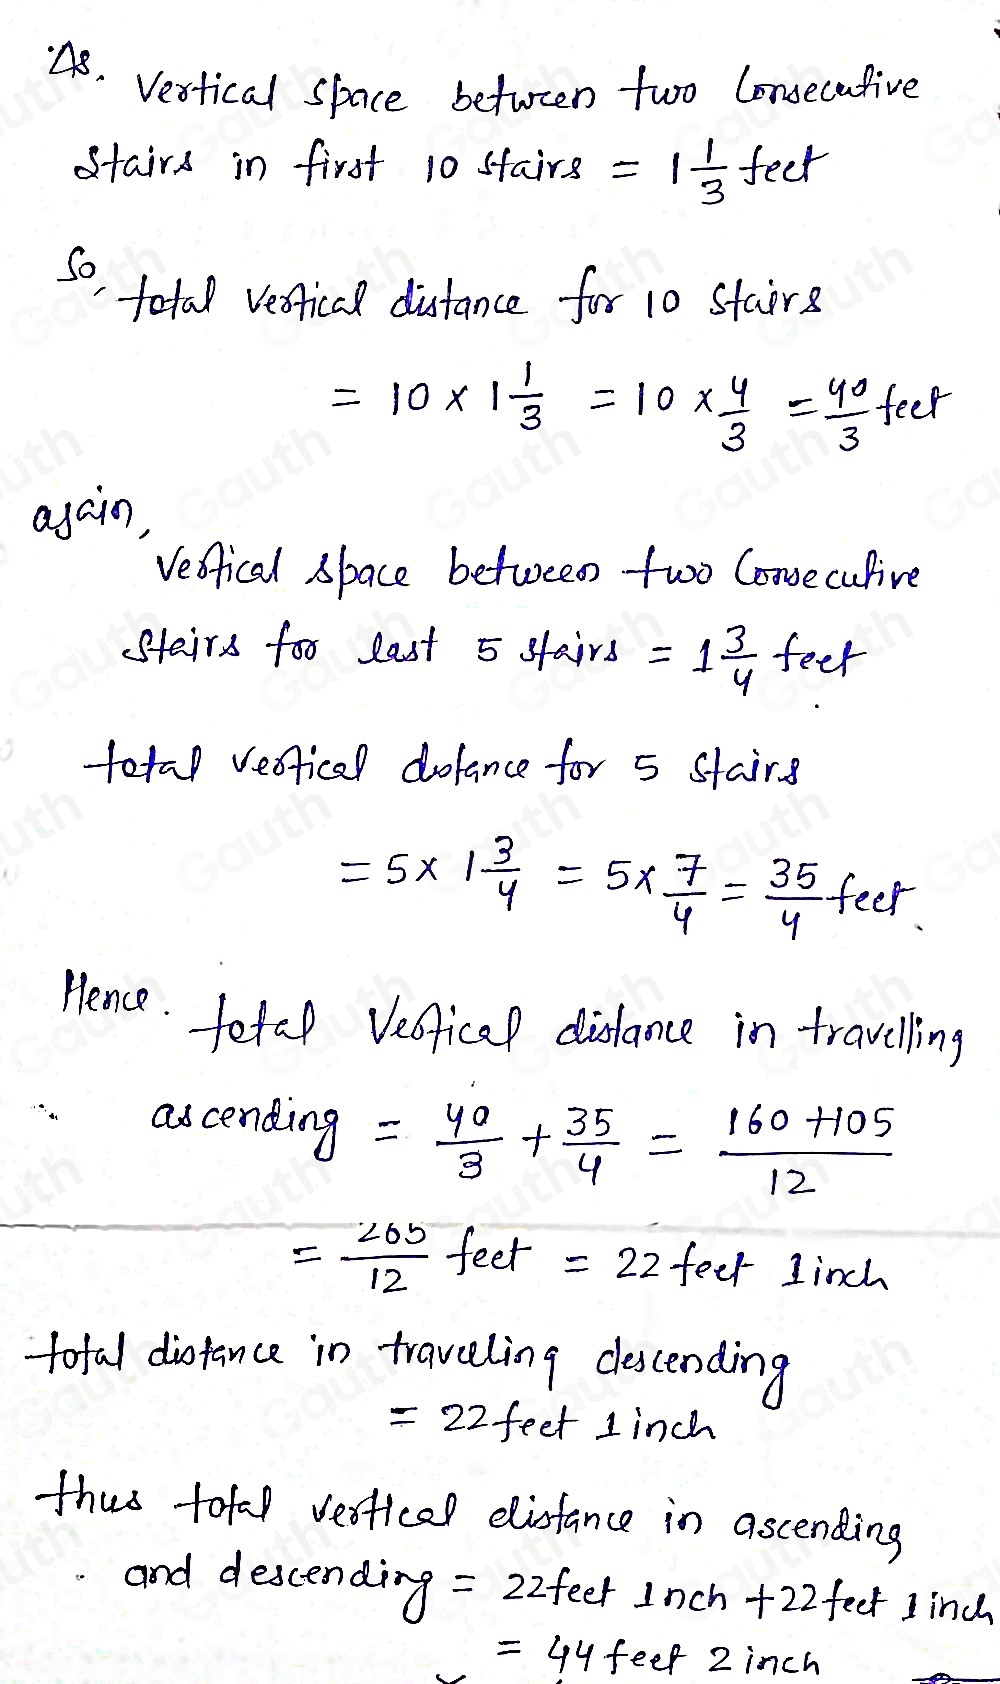 As. Vertical space between two Consecutive
stairs in first 10 stairs = 1 1/3 feet
So, total vertical distance for 10 stairs
= 10 × 1 1/3 = 10 × 4/3 = 40/3 feet
again,
Vertical space between two Consecutive
Stairs for last 5 stairs = 1 3/4 feet
total vertical distance for 5 stairs
= 5 × 1 3/4 = 5 × 7/4 = 35/4 feet.
Hence. total Vertical distance in travelling
ascending = 40/3 + 35/4 = 160+105/12
= 265/12 feet = 22 feet 1 inch
total distance in travelling descending
= 22 feet 1 inch
thus total vertical distance in ascending
and descending = 22 feet 1 nch + 22 feet 1 inch
= 44 feet 2 inch